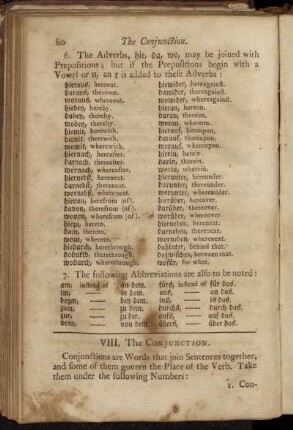 80 The Conjunction.
6. The Adverbs, hie, da, wo, may be joined with
Prepositions; but if the Prepositions begin with a
Vowel or n, an r is added to these Adverbs:
hieraus, hereout.
daraus, thereout.
woraus, whereout.
hiebey, hereby.
dabey, thereby.
wobey, whereby.
hiemit, herewith.
damit, therewith.
womit, wherewith.
hiernach, hereafter.
darnach, thereafter.
wornach, whereafter.
hiernebst, herenext.
darnebst, therenext.
wornebst, wherenext.
hievon, herefrom (of).
davon, therefrom (of).
wovon, wherefrom (of).
hiezu, hereto.
dazu, thereto.
wozu, whereto.
hiedurch, herethrough.
dadurch, therethrough.
wodurch, wherethrough.
hiewider, hereagainst.
dawider, thereagainst.
wowider, whereagainst.
hieran, hereon.
daran, thereon.
woran, whereon.
hierauf, hereupon.
darauf, thereupon.
worauf, whereupon.
hierin, herein.
darin, therein.
worin, wherein.
hierunter, hereunder.
darunter, thereunder.
worunter, whereunder.
hierüber, hereover.
darüber, thereover.
worüber, whereover.
hierneben, herenext.
darneben, therenext.
worneben, wherenext.
dahinter, behind that.
dazwischen, between that.
wofür, for what.
7. The following Abbreviations are also to be noted:
am, instead of an dem.
im, — in dem.
beym, — bey dem.
zum, — zu dem.
zur, — zu der.
vom, — von dem.
fürs, instead of für das.
ans, — an das.
ins, — in das.
durchs, — durch das.
aufs, — auf das.
übers, — über das.
VIII. The Conjunction.
Conjunctions are Words that join Sentences together,
and some of them govern the Place of the Verb. Take
them under the following Numbers:
1. Con-